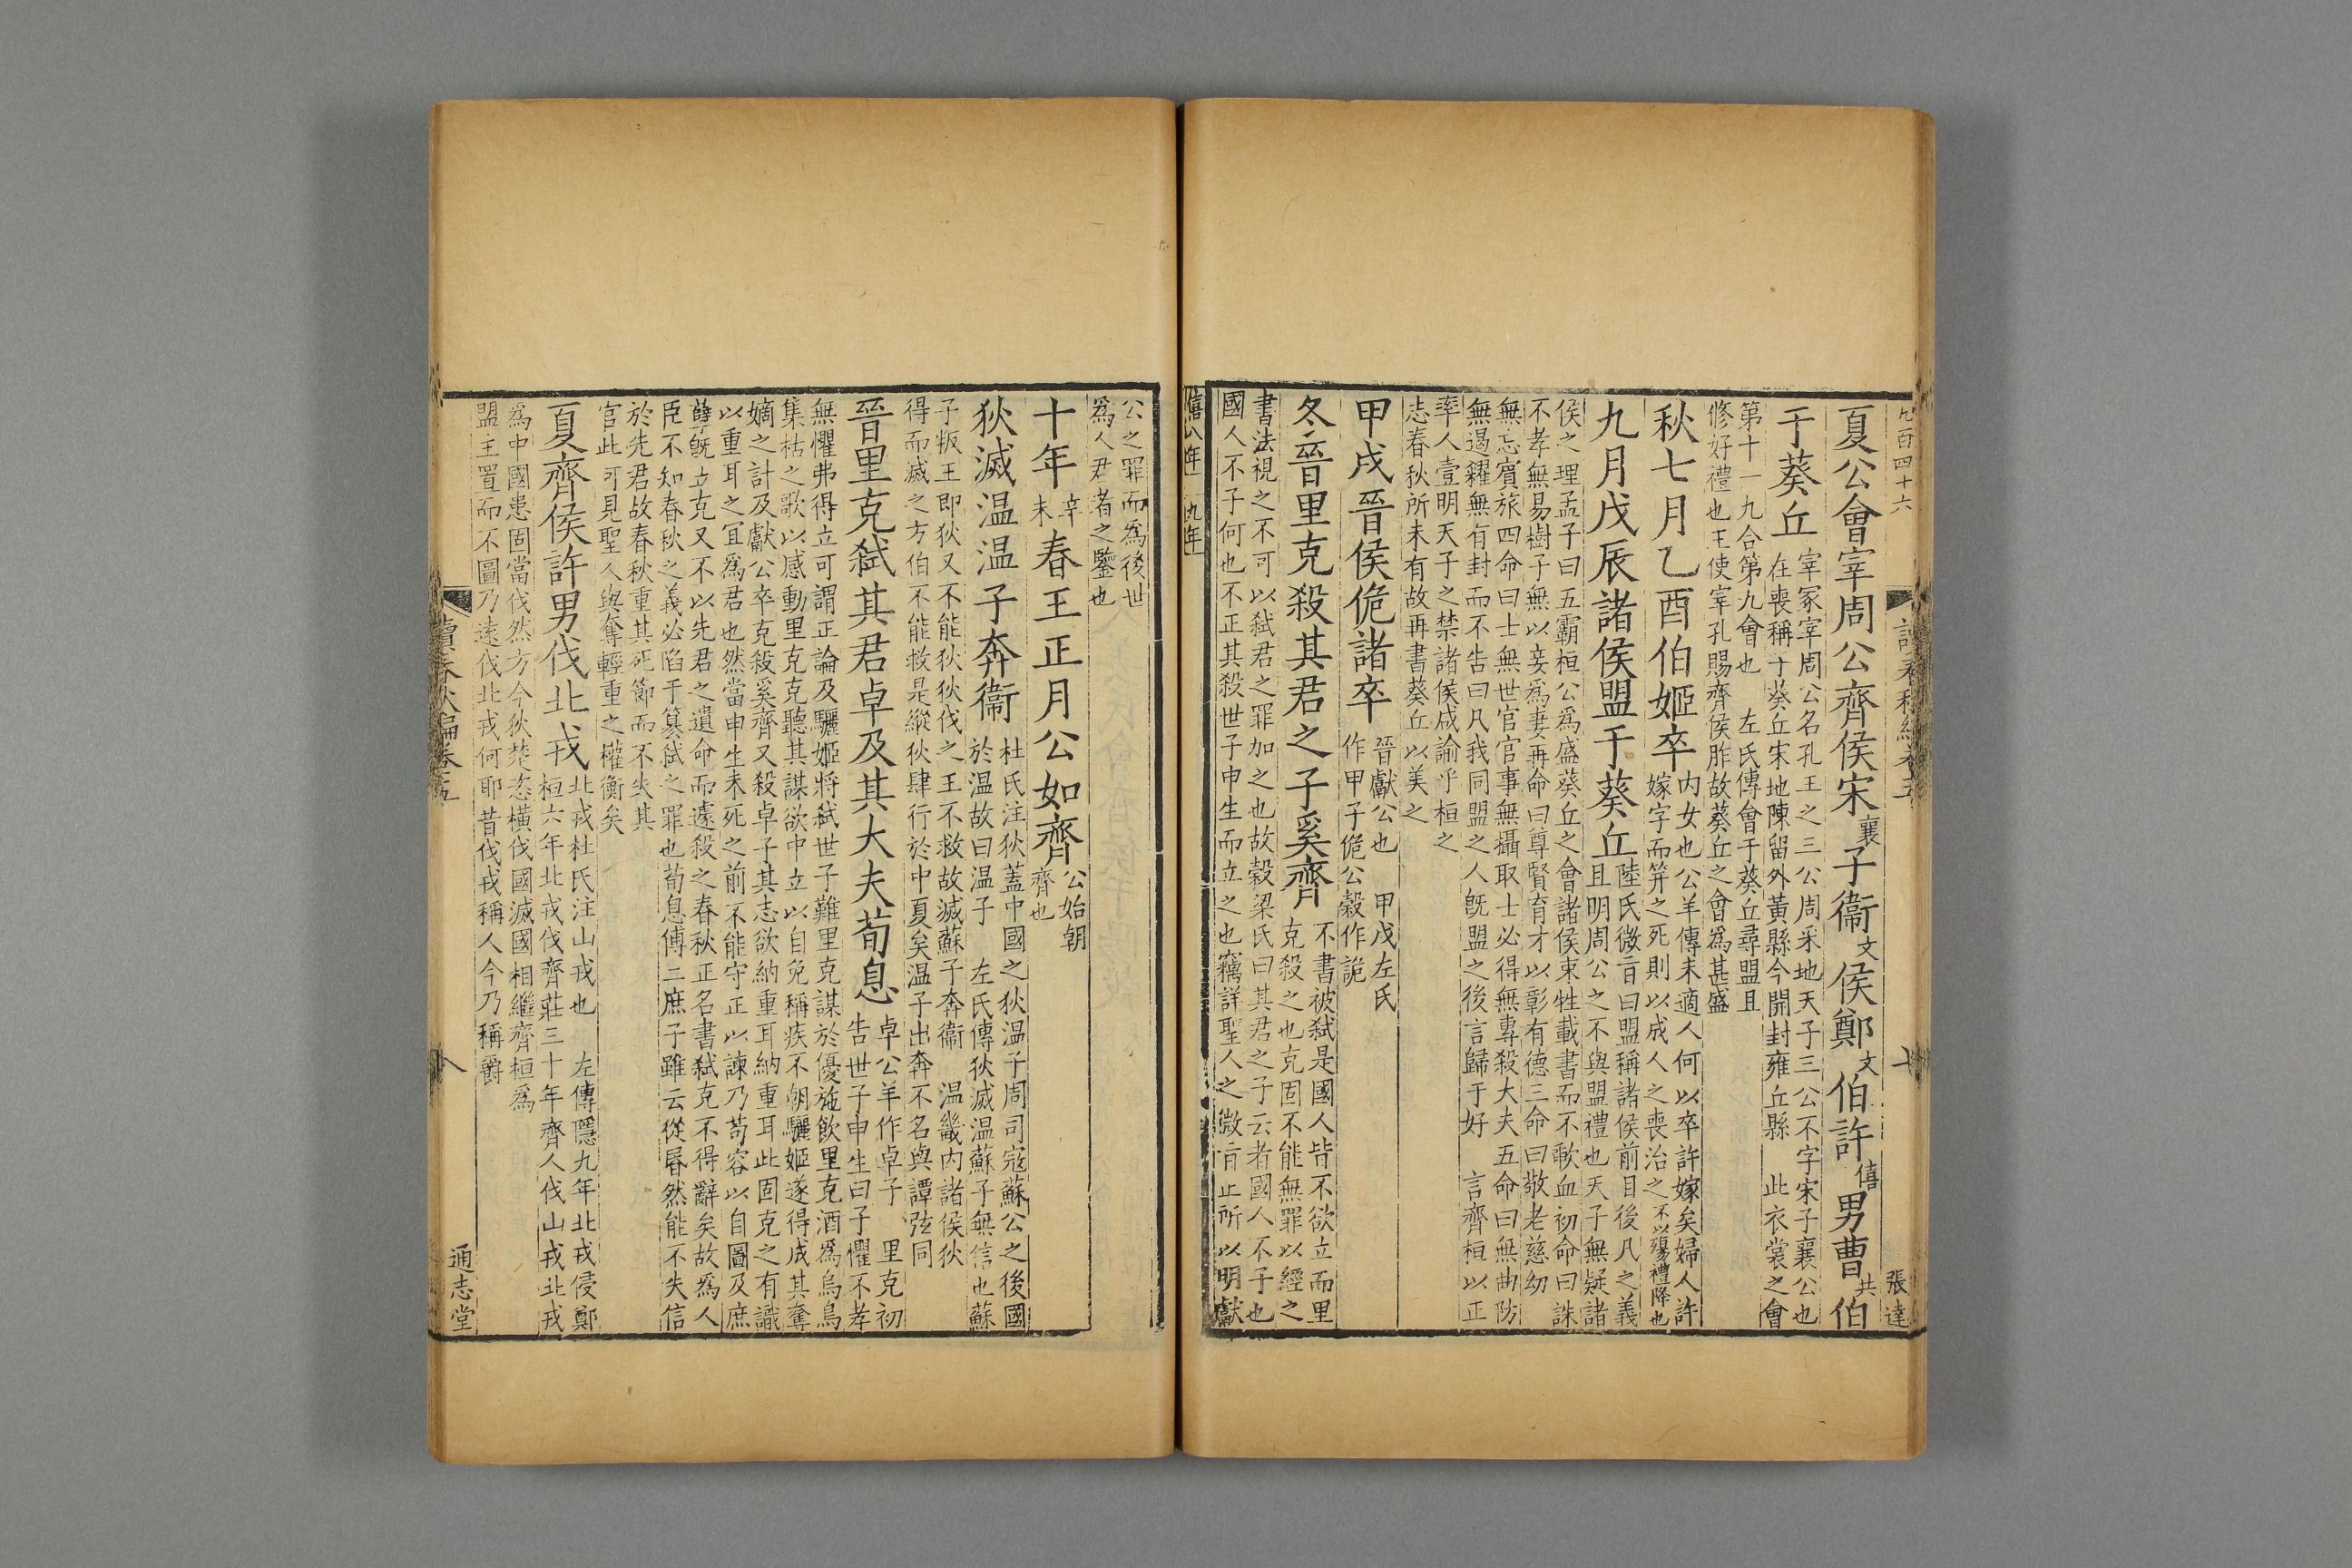 九百四十六
張達
夏公會宰周公齊侯宋襄子衞文侯鄭文伯許僖男曹共伯
于葵丘
宰冢宰周公名孔王之三公周采地天子三公不字宋子襄公也
在喪稱子葵丘宋地陳留外黃縣今開封雍丘縣 此衣裳之會
第十一九合第九會也 左氏傳會于葵丘尋盟且
修好禮也王使宰孔賜齊侯胙故葵丘之會為甚盛
秋七月乙酉伯姬卒
内女也公羊傳未適人何以卒許嫁矣婦人許
嫁字而笄之死則以成人之喪治之不以殤禮降也
九月戊辰諸侯盟于葵丘
陸氏微旨曰盟稱諸侯前目後凡之義
且明周公之不與盟禮也天子無疑諸
侯之理孟子曰五霸桓公為盛葵丘之會諸侯束牲載書而不歃血初命曰誅
不孝無易樹子無以妾為妻再命曰尊賢育才以彰有德三命曰敬老慈幼
無忘賓旅四命曰士無世官官事無攝取士必得無專殺大夫五命曰無曲防
無遏糴無有封而不告曰凡我同盟之人旣盟之後言歸于好 言齊桓以正
率人壹明天子之禁諸侯咸諭乎桓之
志春秋所未有故再書葵丘以美之
甲戌晉侯佹諸卒
晉獻公也 甲戌左氏
作甲子佹公穀作詭
冬晉里克殺其君之子奚齊
不書被弑是國人皆不欲立而里
克殺之也克固不能無罪以經之
書法視之不可以弑君之罪加之也故穀梁氏曰其君之子云者國人不子也
國人不子何也不正其殺世子申生而立之也竊詳聖人之微旨正所以明獻
僖八年 九年
公之罪而為後世
為人君者之鑒也
十年辛未春王正月公如齊
公始朝
齊也
狄滅温温子奔衞
杜氏注狄蓋中國之狄温子周司寇蘇公之後國
於温故曰温子 左氏傳狄滅温蘇子無信也蘇
子叛王即狄又不能狄狄伐之王不救故滅蘇子奔衞 温畿内諸侯狄
得而滅之方伯不能救是縱狄肆行於中夏矣温子出奔不名與譚弦同
晉里克弑其君卓及其大夫荀息
卓公羊作卓子 里克初
告世子申生曰子懼不孝
無懼弗得立可謂正論及驪姬將弑世子難里克謀於優施飲里克酒為烏烏
集枯之歌以感動里克克聽其謀欲中立以自免稱疾不朝驪姬遂得成其奪
嫡之計及獻公卒克殺奚齊又殺卓子其志欲納重耳納重耳此固克之有識
以重耳之冝為君也然當申生未死之前不能守正以諫乃苟容以自圖及庶
孽旣立克又不以先君之遺命而遽殺之春秋正名書弑克不得辭矣故為人
臣不知春秋之義必陷于篡弑之罪也荀息傅二庶子雖云從昬然能不失信
於先君故春秋重其死節而不失其
官此可見聖人與奪輕重之權衡矣
夏齊侯許男伐北戎
北戎杜氏注山戎也 左傳隱九年北戎侵鄭
桓六年北戎伐齊莊三十年齊人伐山戎北戎
為中國患固當伐然方今狄楚恣橫伐國滅國相繼齊桓為
盟主置而不圖乃遠伐北戎何耶昔伐戎稱人今乃稱爵
讀春秋編卷五
八
通志堂